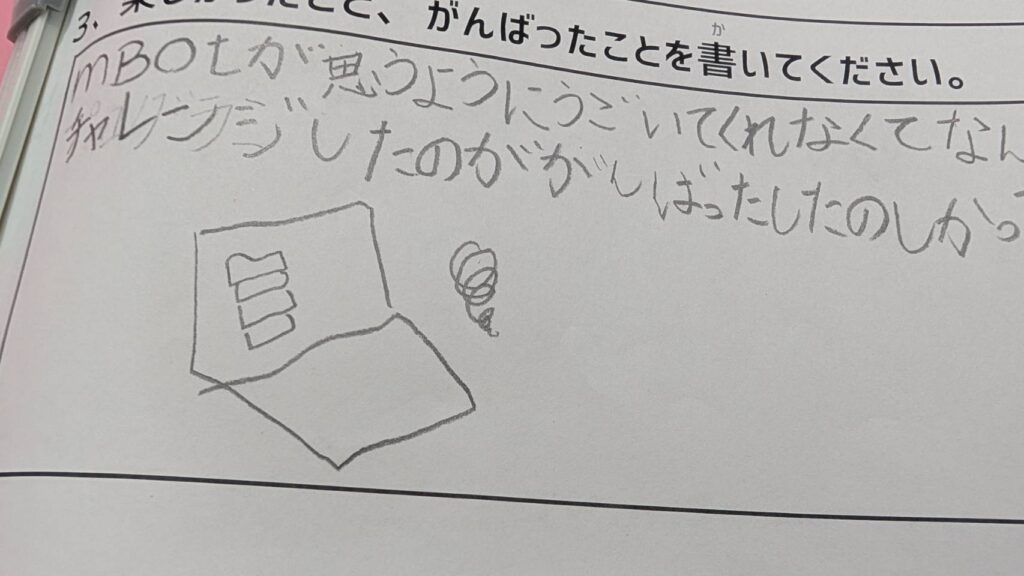 3. 楽しかったこと、がんばったことを書いてください。
か
mBOtが思うようにうごいてくれなくてなん
チャレンジしたのががんばったしたのしかっ